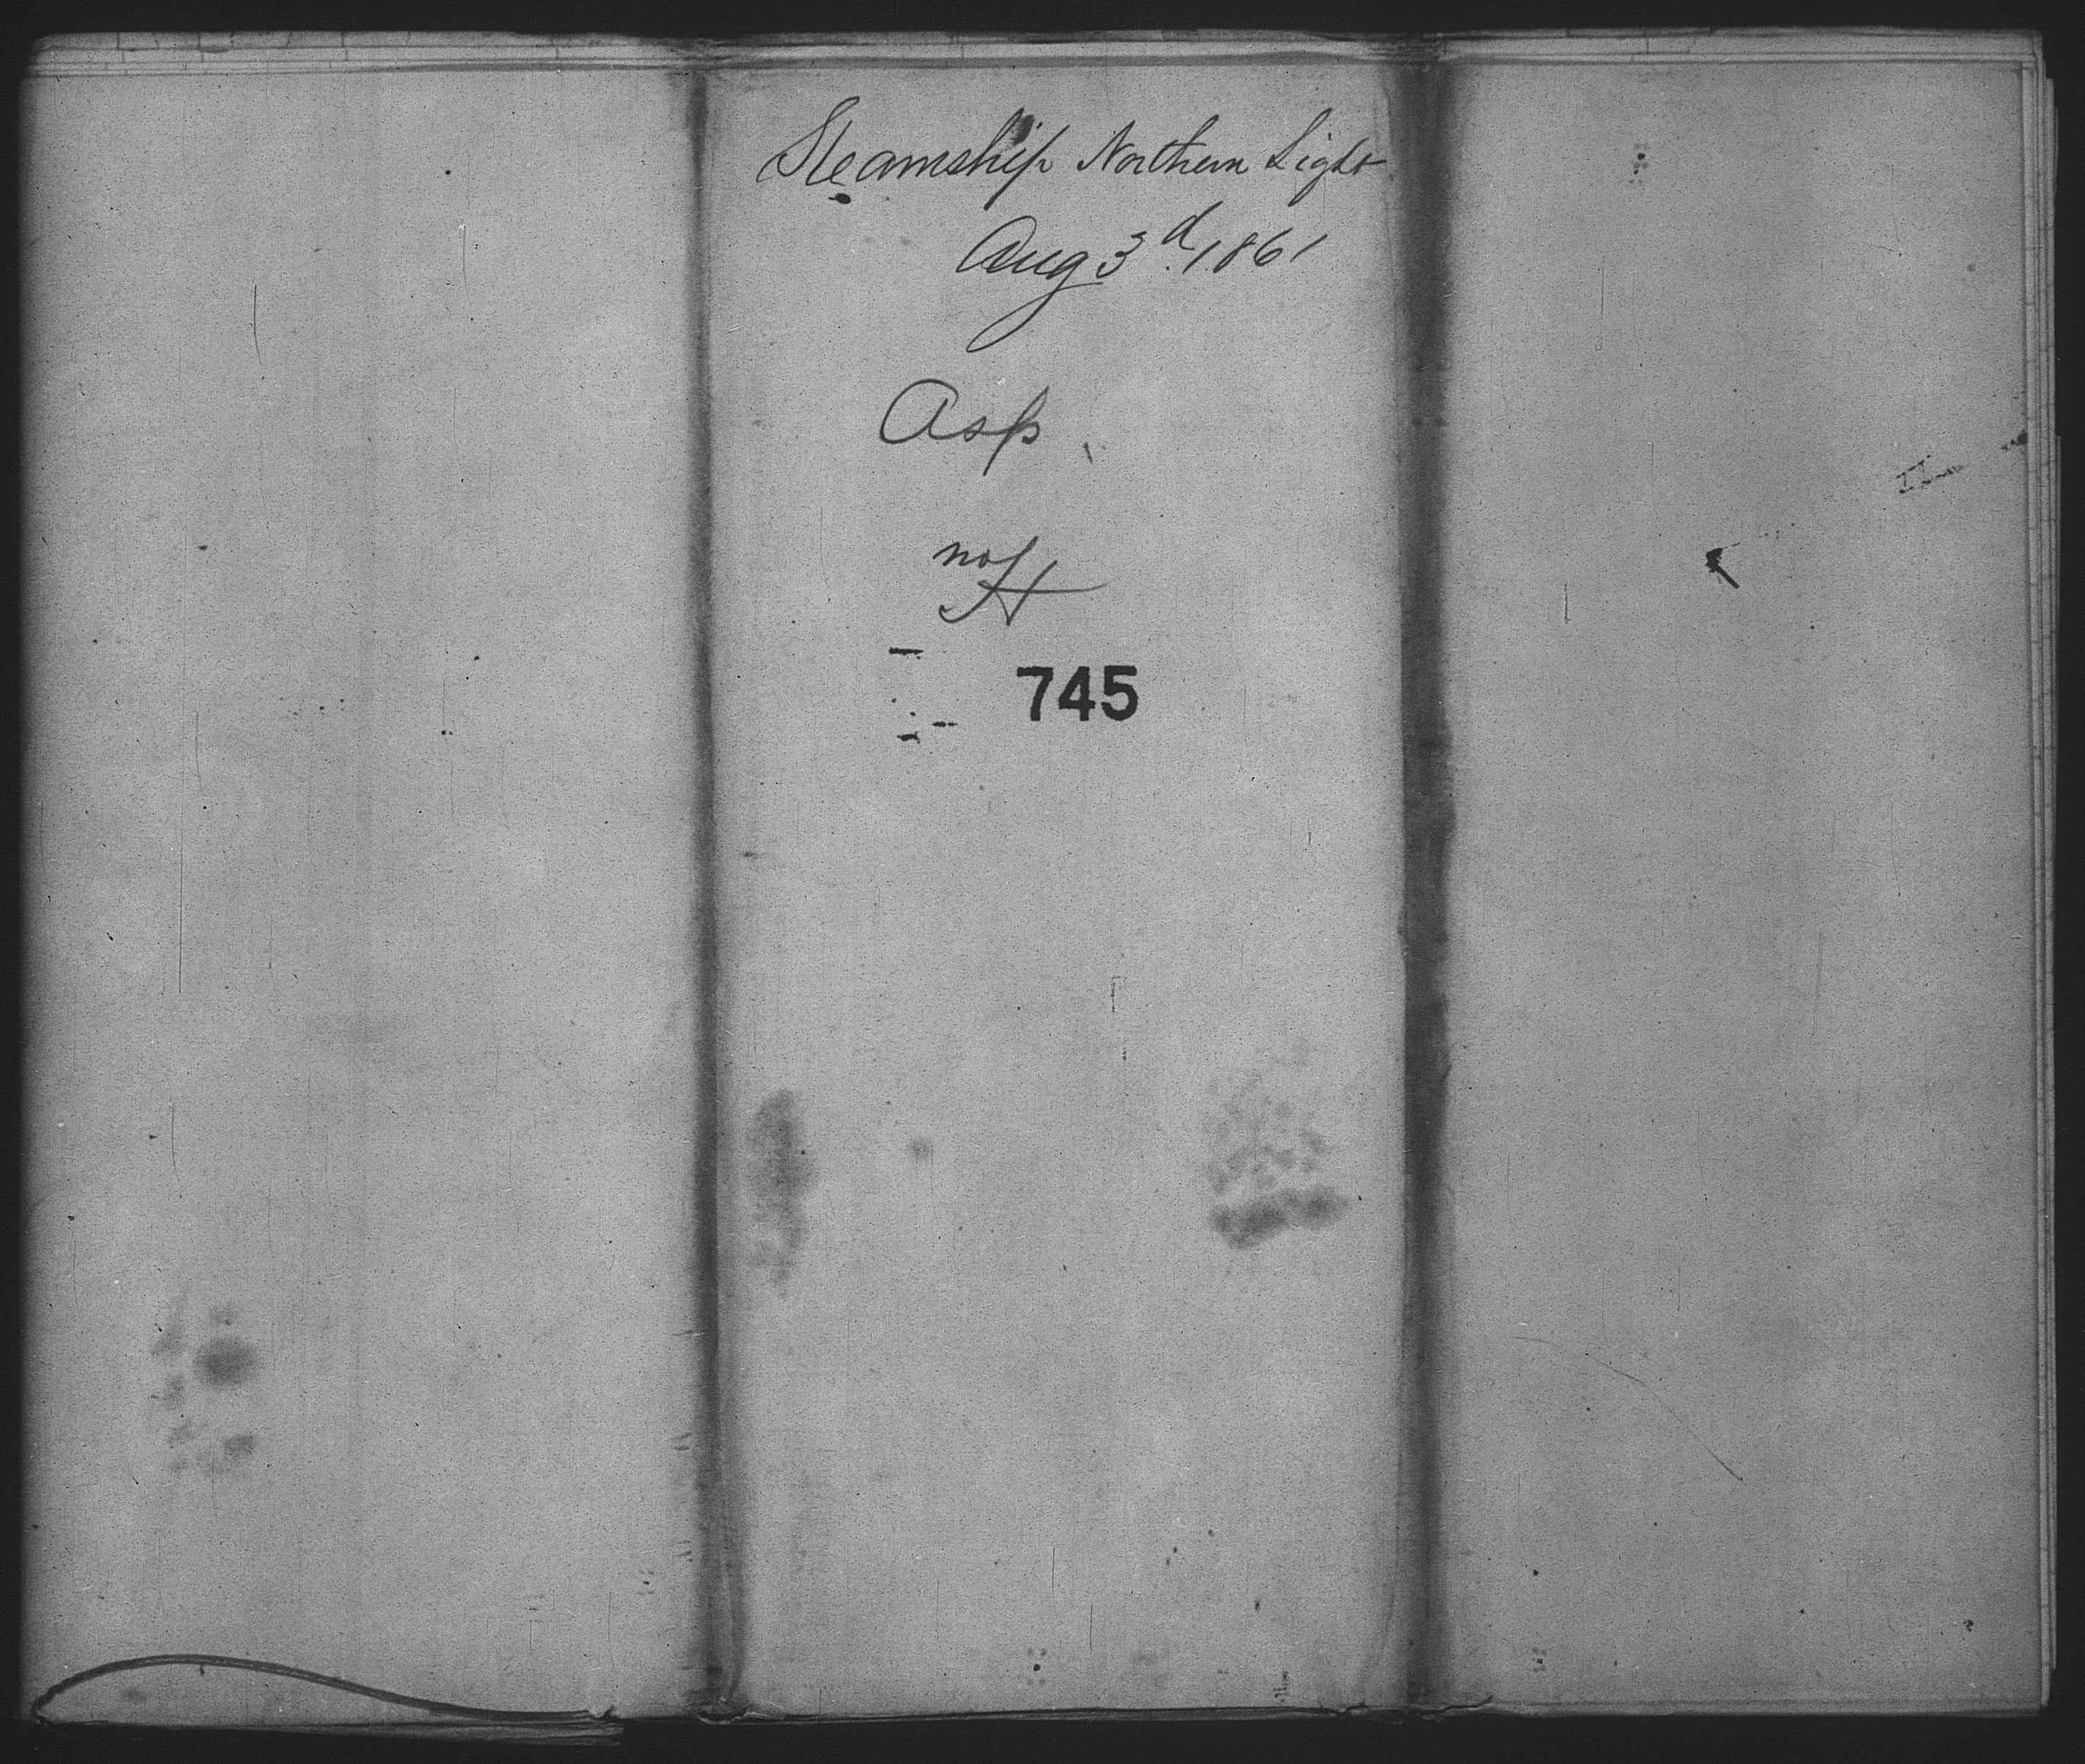 Steamship Northern Light
Aug 3d. 1861
Asp.
no H
745